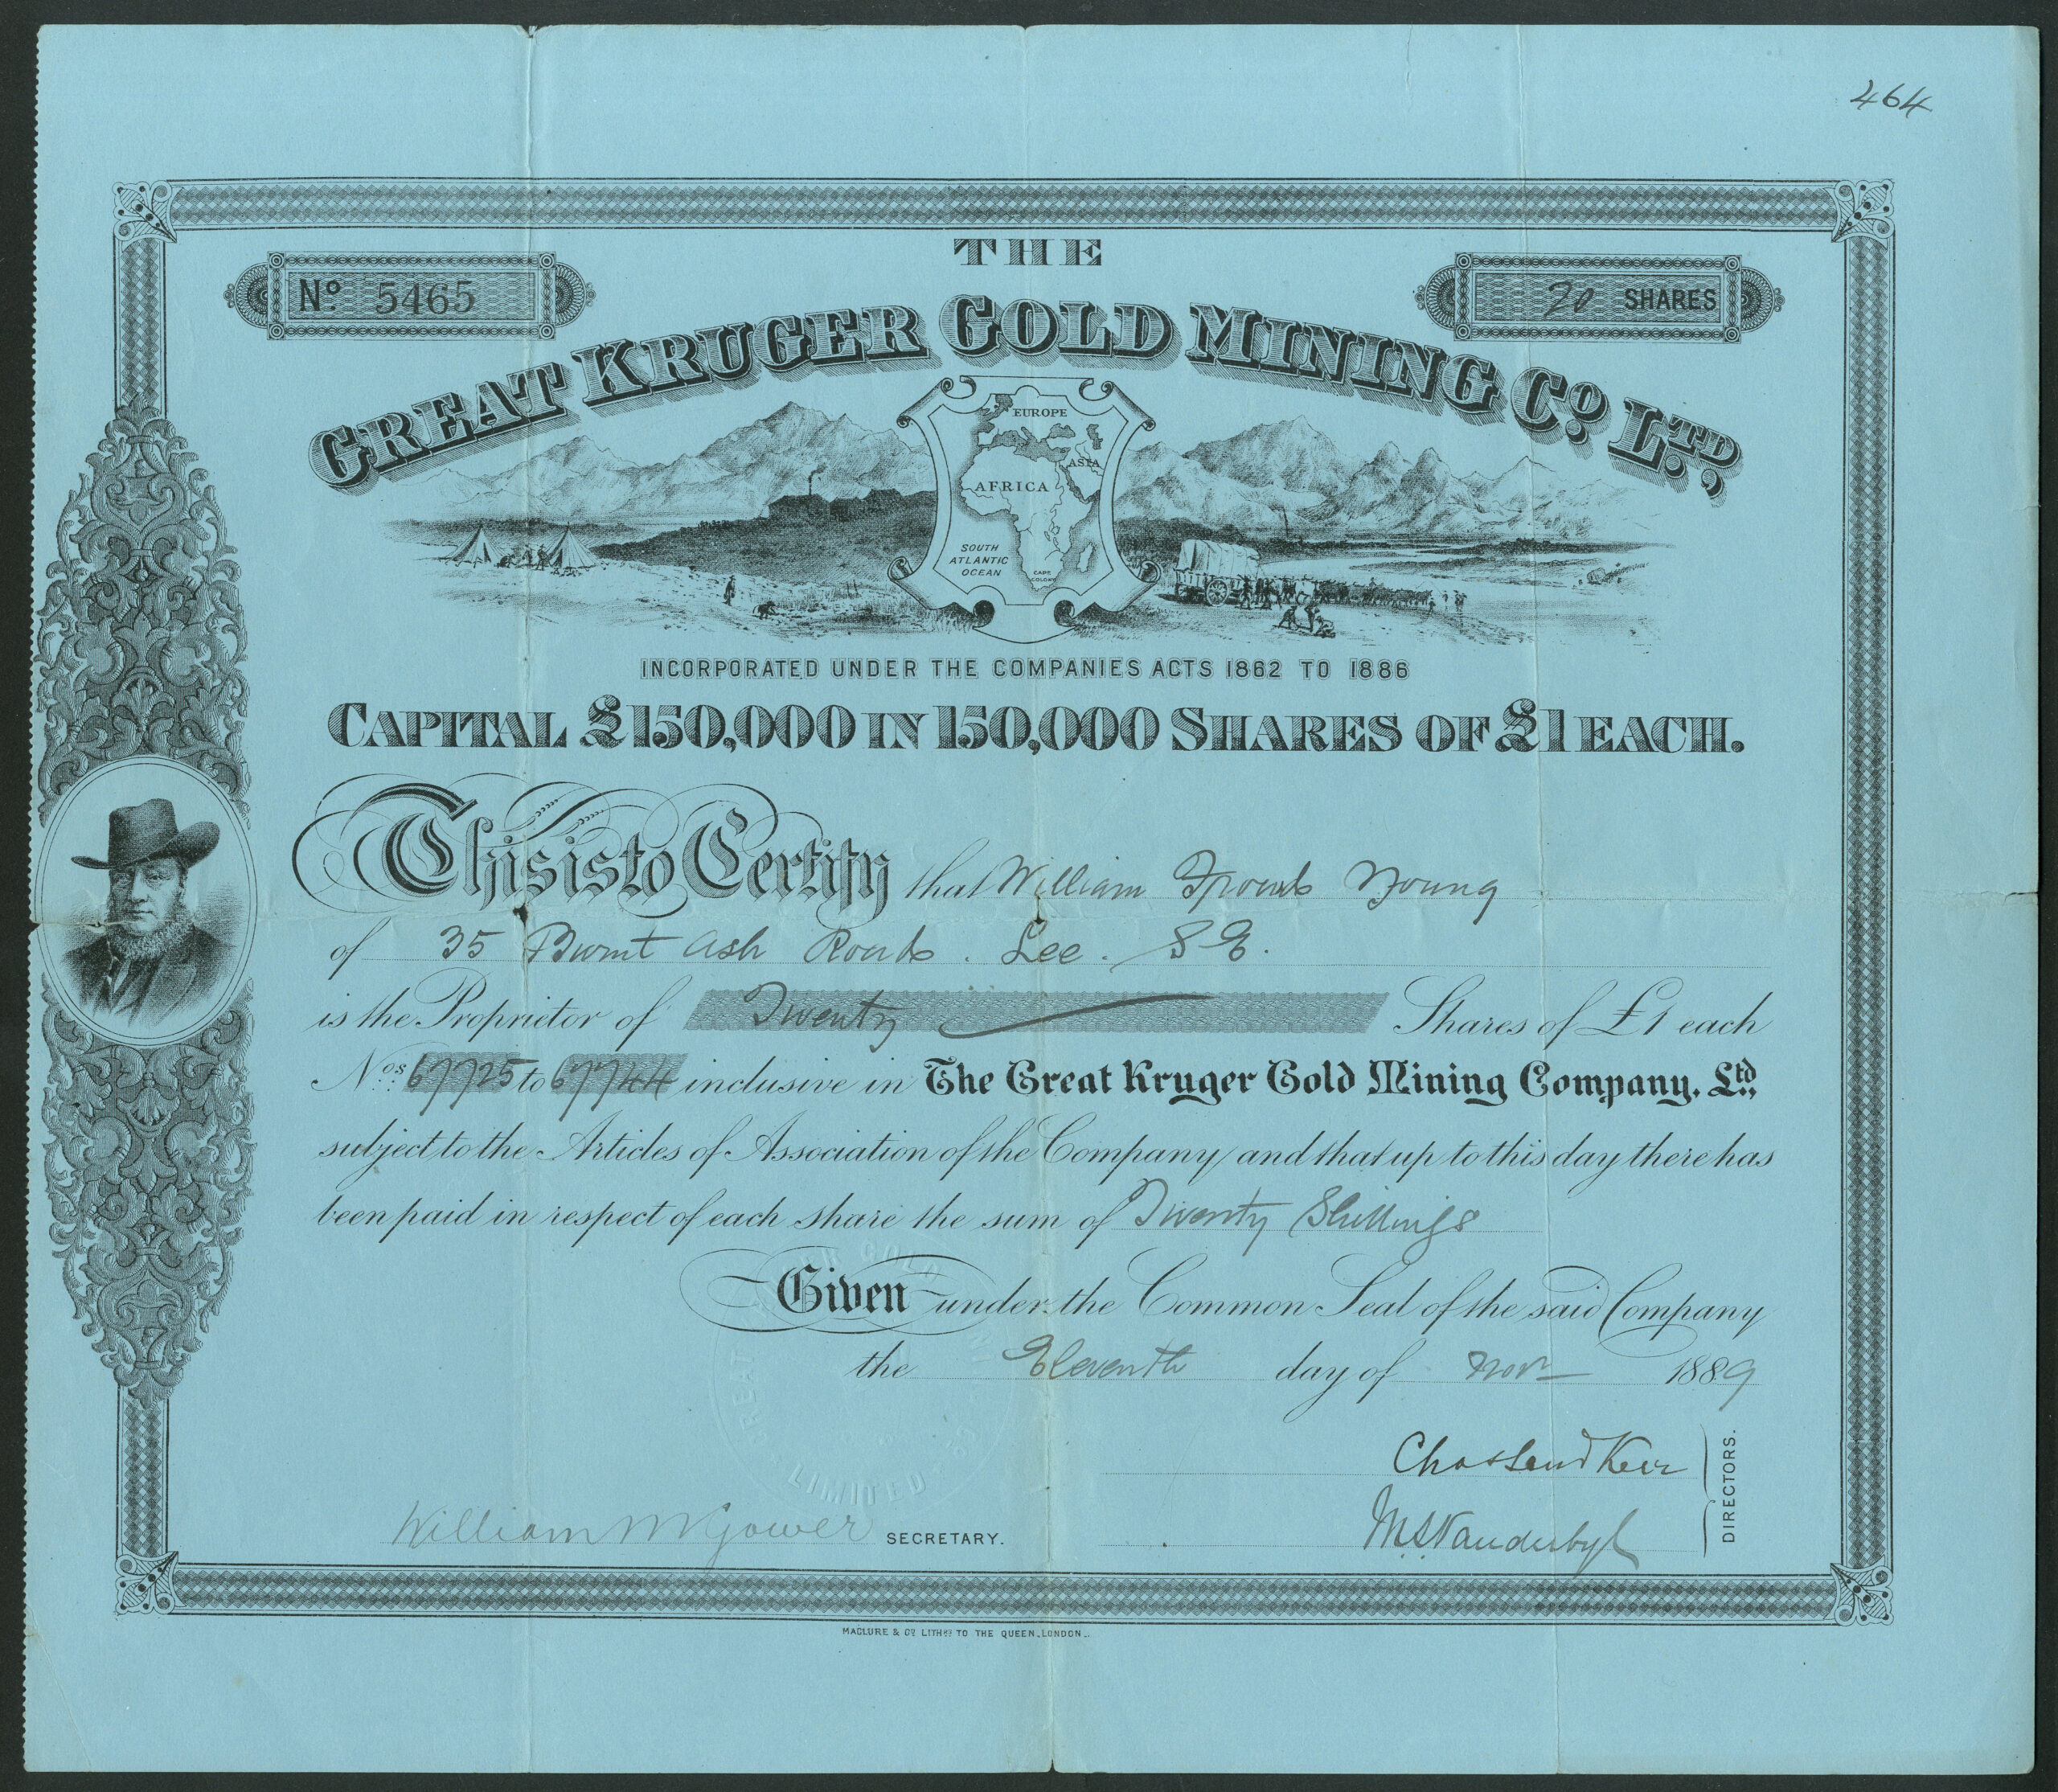 464
THE
No. 5465
20 SHARES
GREAT KRUGER GOLD MINING CO. LTD.,
EUROPE
ASIA
AFRICA
SOUTH
ATLANTIC
OCEAN
CAPE
COLONY
INCORPORATED UNDER THE COMPANIES ACTS 1862 TO 1886
CAPITAL £150,000 IN 150,000 SHARES OF £1 EACH.
This is to Certify that William Young
of 35 Burnt Ash Road. Lee. S E.
is the Proprietor of Twenty Shares of £1 each
Nos. 67725 to 67744 inclusive in The Great Kruger Gold Mining Company, Ltd.,
subject to the Articles of Association of the Company and that up to this day there has
been paid in respect of each share the sum of Twenty Shillings
Given under the Common Seal of the said Company
the Eleventh day of Novr 1889
GREAT KRUGER GOLD MINING CO. LIMITED
Chas Kerr
M.S. Vanderbyl
DIRECTORS.
William M Gower SECRETARY.
MACLURE & CO. LITHRS. TO THE QUEEN, LONDON.